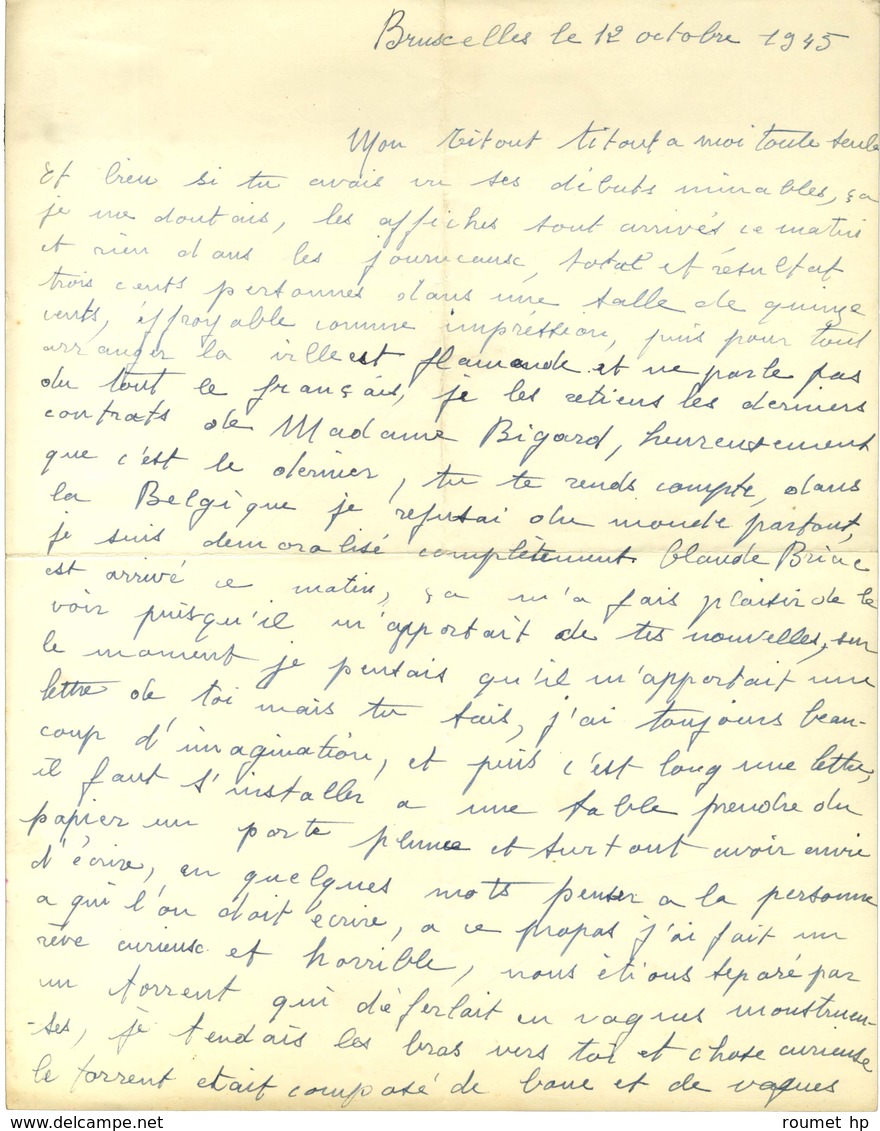 Bruxelles le 12 octobre 1945
Mon Titout titout a moi toute seule
Et bien si tu avais vu ses débuts minables, ça
je me doutais, les affiches sont arrivés ce matin
et rien dans les journeaux, total et résultat
trois cents personnes dans une salle de quinze
cents, éffroyable comme impréssion, puis pour tout
arranger la ville est flamande et ne parle pas
du tout le français, je les retiens les derniers
contrats de Madame Bigard, heureusement
que c'est le dernier, tu te rends compte, dans
la Belgique je réfusai du monde partout,
je suis demoralisé complètement. Claude Briac
est arrivé ce matin, ça m'a fais plaisir de le
voir puisqu'il m'apportait de tes nouvelles, sur
le moment je pensais qu'il m'apportait une
lettre de toi mais tu sais, j'ai toujours beau-
coup d'imagination, et puis c'est long une lettre,
il faut s'installer a une table prendre du
papier un porte plume et surtout avoir envie
d'écrire, en quelques mots penser a la personne
a qui l'on doit écrire, a ce propos j'ai fait un
rêve curieux et horrible, nous étions separé par
un torrent qui déferlait en vagues monstrueu-
-ses, je tendais les bras vers toi et chose curieuse
le torrent etait composé de boue et de vagues
roumet hp